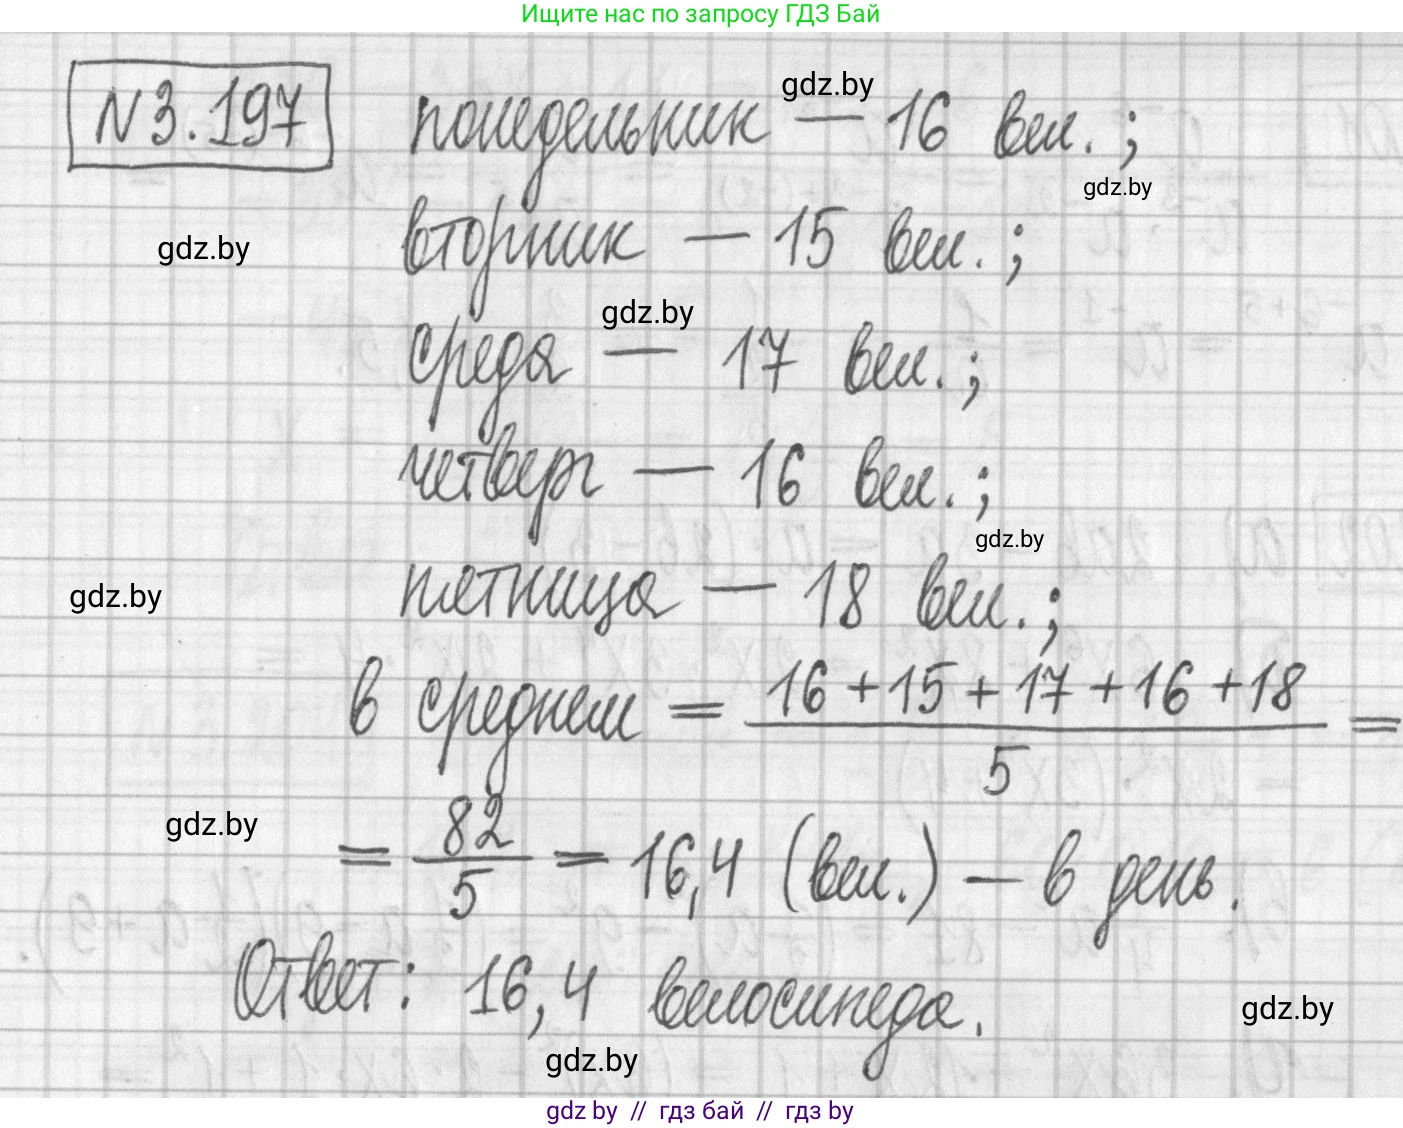 Ищите нас по запросу ГДЗ Бай
№3.197 понедельник — 16 вел. ;
gdz.by
gdz.by
вторник — 15 вел. ;
gdz.by
gdz.by
среда — 17 вел. ;
четверг — 16 вел. ;
gdz.by
пятница — 18 вел. ;
gdz.by
в среднем = (16 + 15 + 17 + 16 + 18) / 5 =
= 82 / 5 = 16,4 (вел.) — в день.
gdz.by
Ответ: 16,4 велосипеда.
gdz.by
gdz.by
gdz by // гдз бай // гдз by